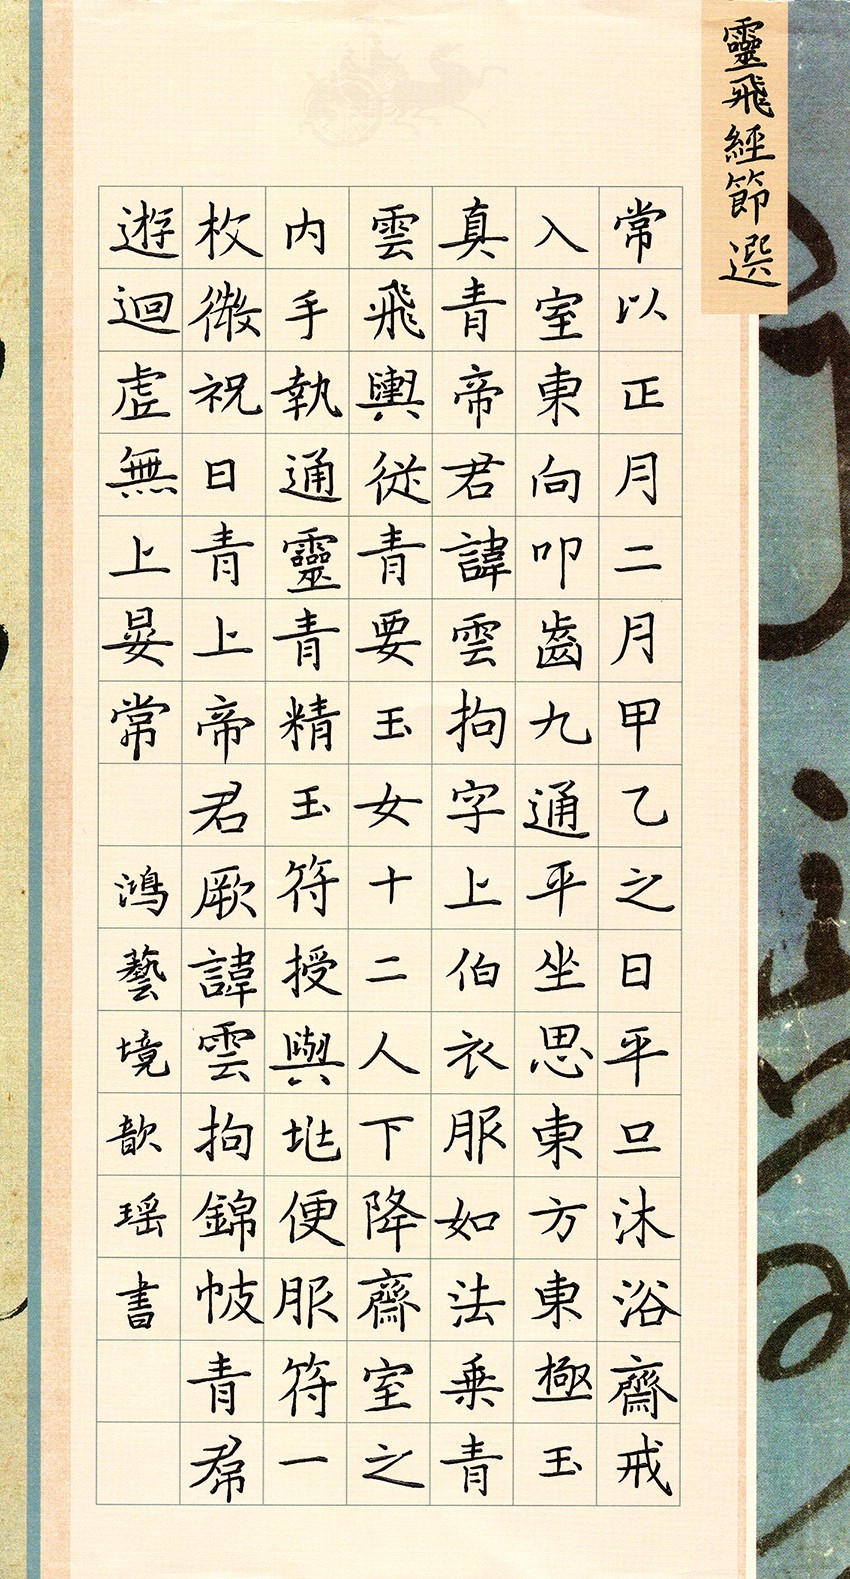 靈飛經節選
常以正月二月甲乙之日平旦沐浴齋戒
入室東向叩齒九通平坐思東方東極玉
真青帝君諱雲拘字上伯衣服如法乗青
雲飛輿從青要玉女十二人下降齋室之
内手執通靈青精玉符授與便服符一
枚微祝曰青上帝君厥諱雲拘錦帔青帬
遊迴虚無上晏常 鴻藝境歆瑶書